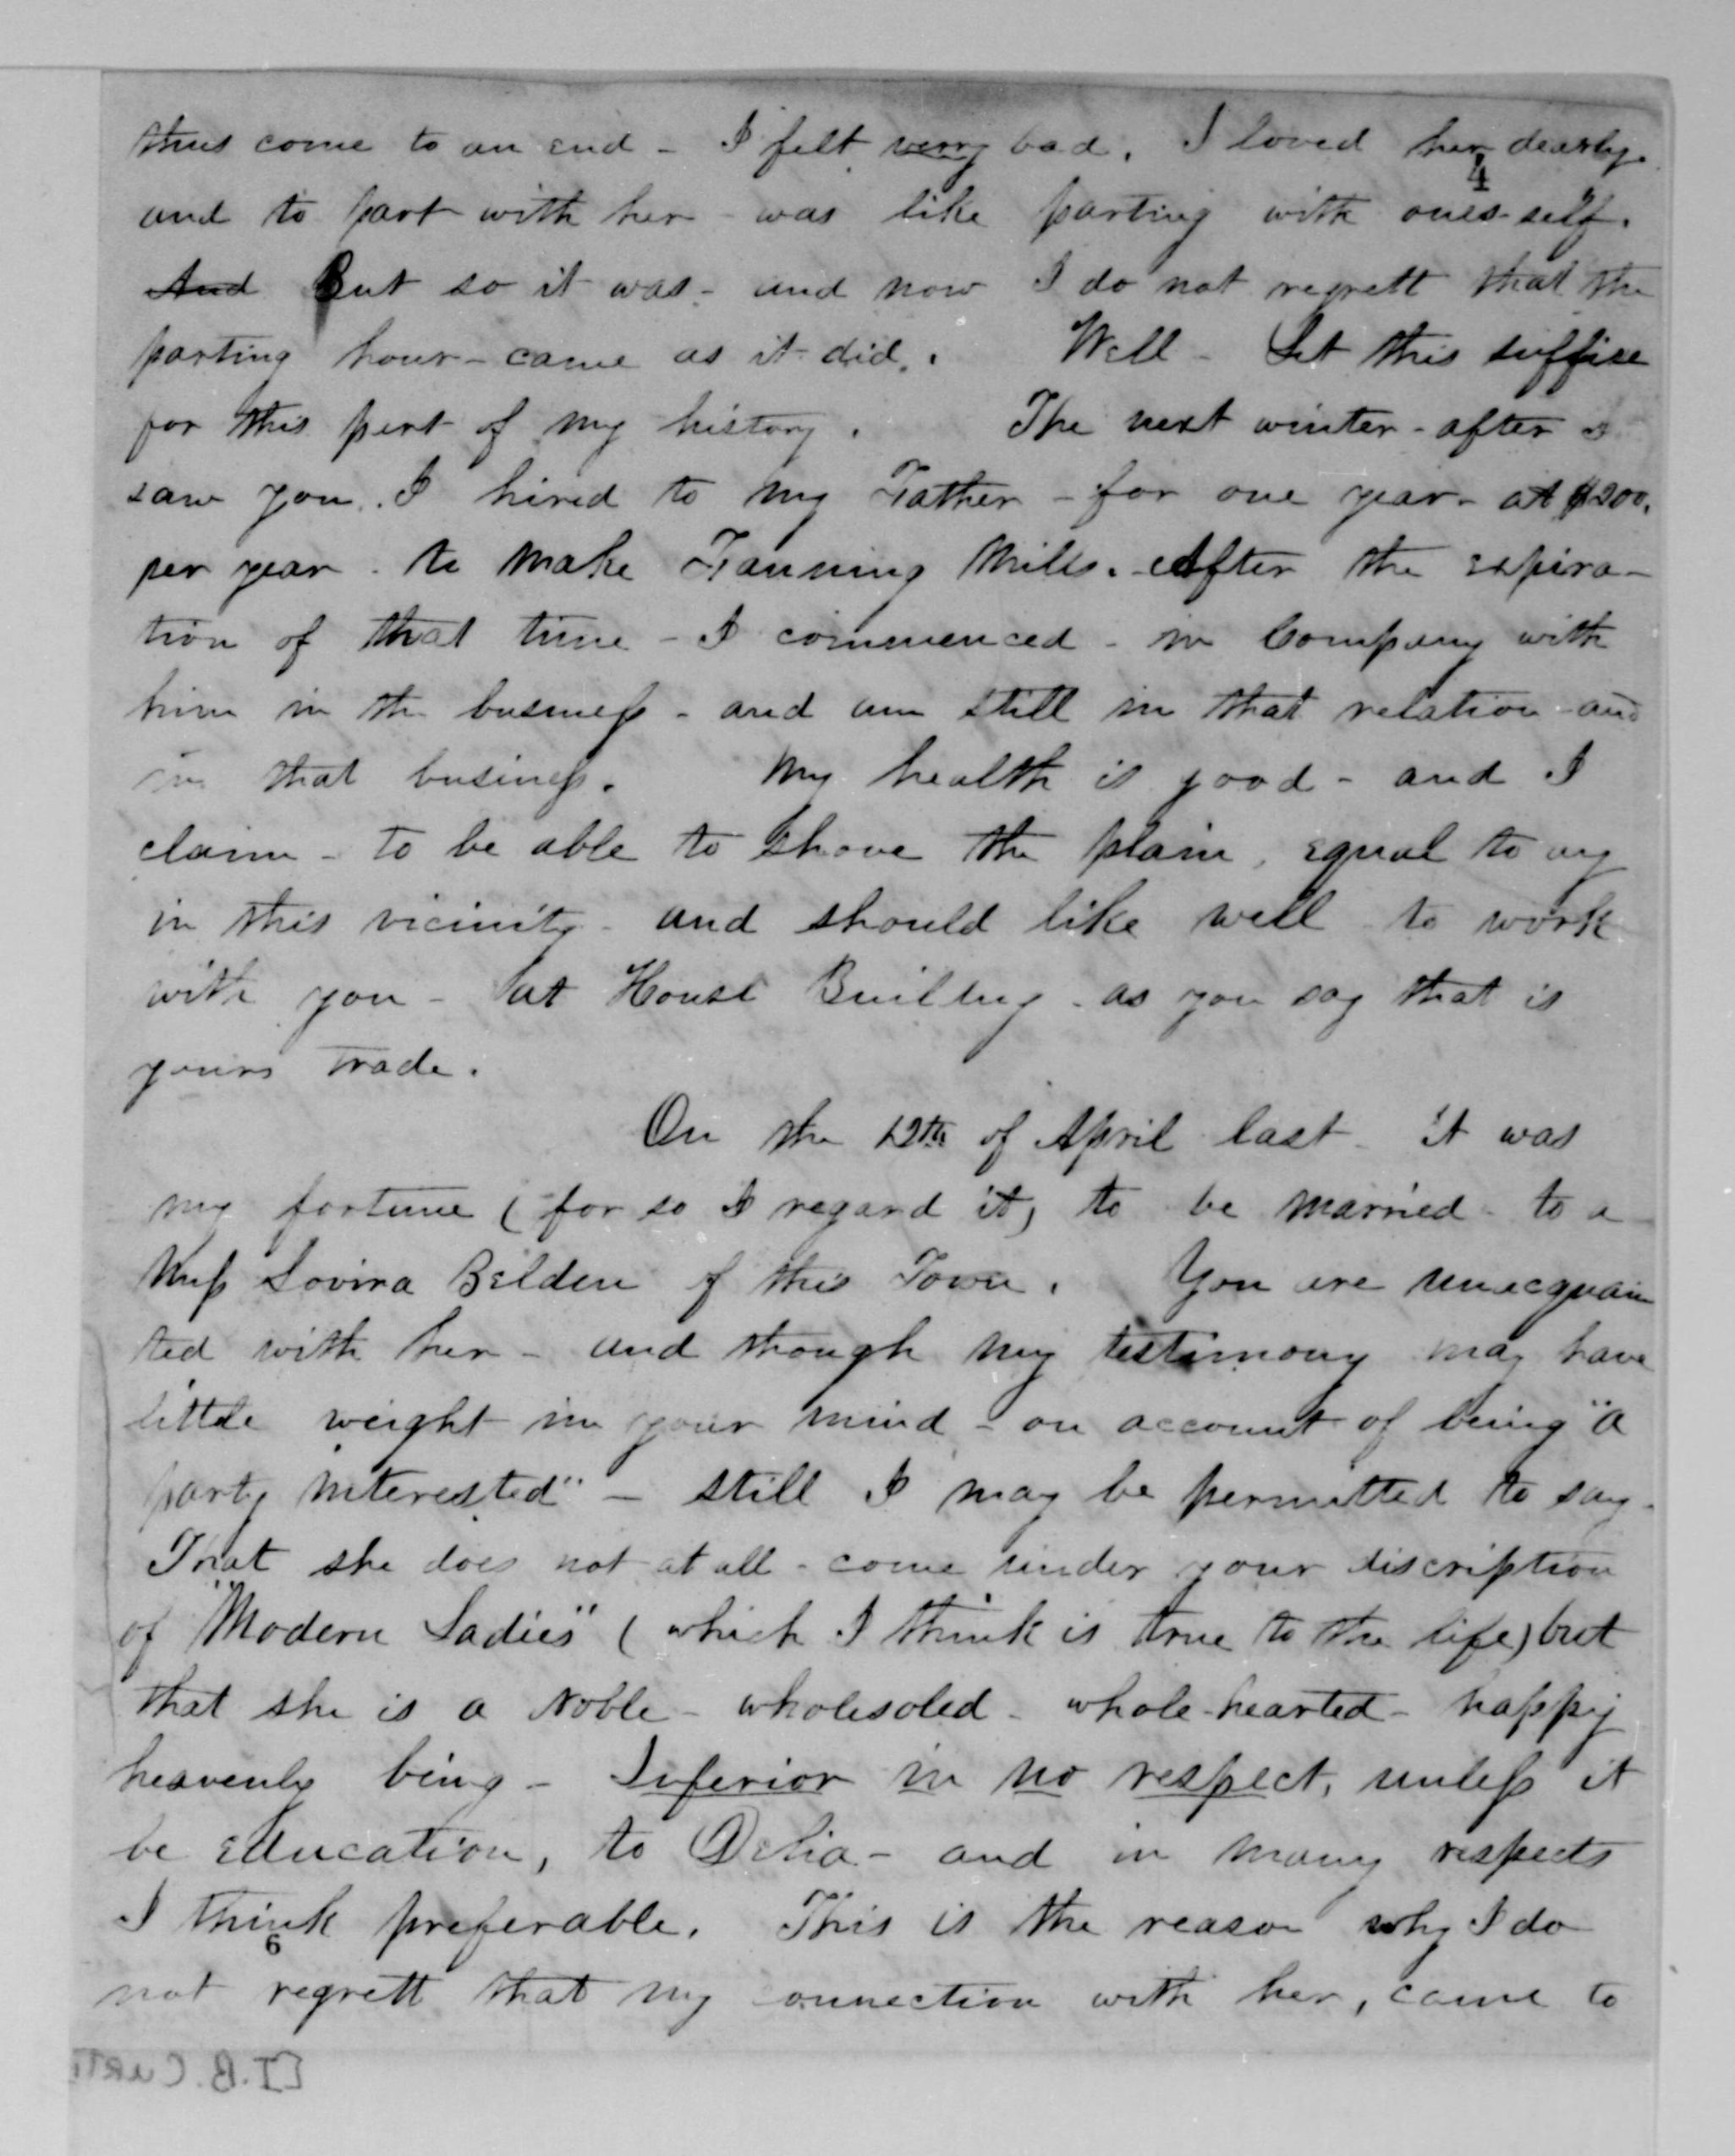 thus come to an end - I felt very bad. I loved her dearly.
4
and to part with her - was like parting with ones-self.
And But so it was - and now I do not regrett that the
parting hour - came as it did. Well - Let this suffise
for this part of my history. The next winter - after I
saw you. I hired to my Father - for one year - at $200.
per year - to make Fanning Mills. After the expira-
tion of that time - I commenced - in Company with
him in the business - and am still in that relation - and
in that business. My health is good - and I
claim - to be able to shove the plain, equal to any
in this vicinity - and should like well to work
with you - at House Building - as you say that is
yours trade.
On the 12th of April last - it was
my fortune (for so I regard it) to be married - to a
Miss Lovira Belden of this Town. You are unacquain
ted with her - and though my testimony may have
little weight in your mind - on account of being "a
party interested" - still I may be permitted to say -
That she does not at all - come under your discription
of "Modern Ladies" (which I think is true to the life) but
that she is a Noble - wholesoled - whole-hearted - happy
heavenly being - Inferior in no respect, unless it
be education, to Delia - and in many respects
I think preferable. This is the reason why I do
6
not regrett that my connection with her, came to
[I. B. CURTI